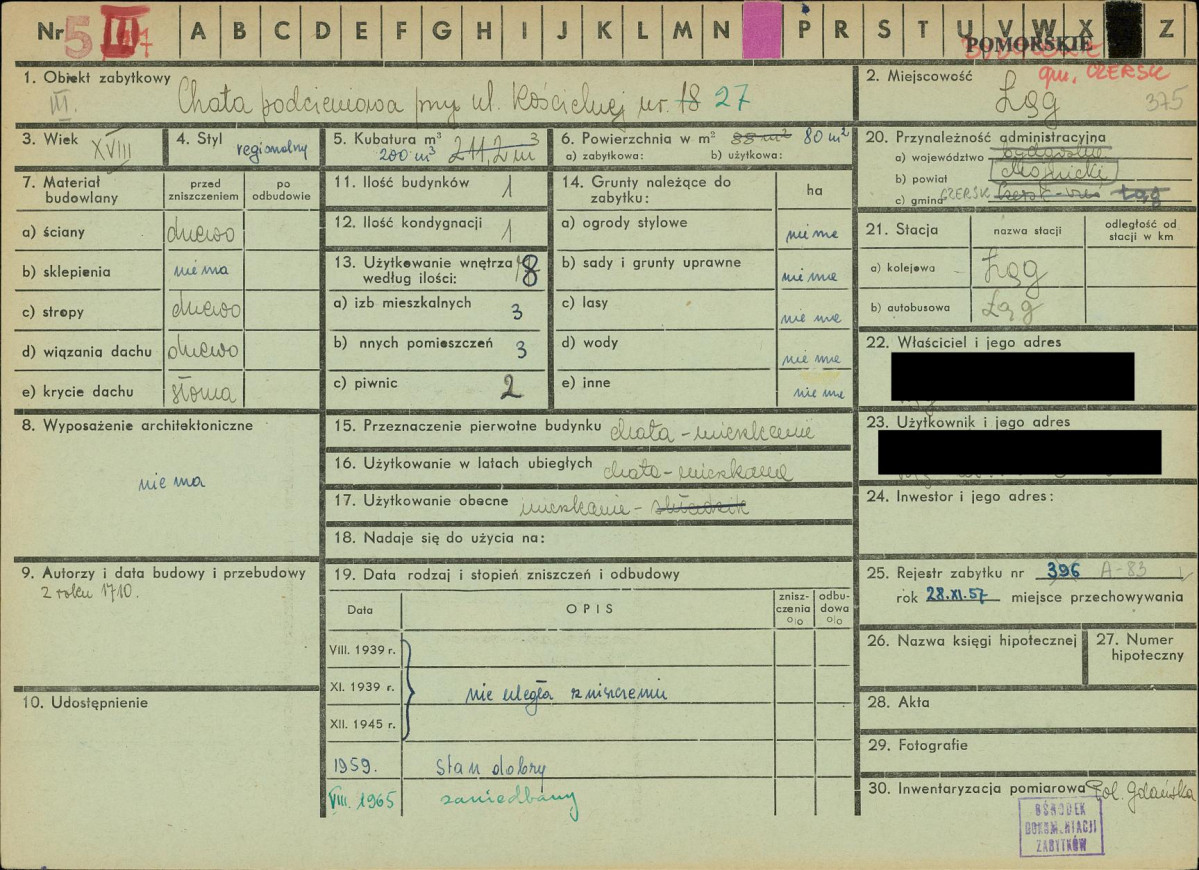 Nr 5 III A B C D E F G H I J K L M N P R S T U V W X Z
POMORSKIE
1. Obiekt zabytkowy
III.
Chata podcieniowa przy ul. Kościelnej nr. 18 27
2. Miejscowość
gm. CZERSK
Łąg
375
3. Wiek XVIII
4. Styl regionalny
5. Kubatura m³ 211,2 m³
200 m³
6. Powierzchnia w m² 88 m² 80 m²
a) zabytkowa: b) użytkowa:
20. Przynależność administracyjna
a) województwo bydgoskie
b) powiat chojnicki
c) gmina CZERSK Czersk-wieś Łąg
7. Materiał budowlany
przed zniszczeniem
po odbudowie
a) ściany drewno
b) sklepienia nie ma
c) stropy drewno
d) wiązania dachu drewno
e) krycie dachu słoma
11. Ilość budynków 1
12. Ilość kondygnacji 1
13. Użytkowanie wnętrza według ilości: 8
a) izb mieszkalnych 3
b) nnych pomieszczeń 3
c) piwnic 2
14. Grunty należące do zabytku:
ha
a) ogrody stylowe nie ma
b) sady i grunty uprawne nie ma
c) lasy nie ma
d) wody nie ma
e) inne nie ma
21. Stacja
nazwa stacji
odległość od stacji w km
a) kolejowa Łąg
b) autobusowa Łąg
22. Właściciel i jego adres
23. Użytkownik i jego adres
24. Inwestor i jego adres:
8. Wyposażenie architektoniczne
nie ma
15. Przeznaczenie pierwotne budynku chata - mieszkanie
16. Użytkowanie w latach ubiegłych chata - mieszkanie
17. Użytkowanie obecne mieszkanie - składzik
18. Nadaje się do użycia na:
9. Autorzy i data budowy i przebudowy
z roku 1710.
10. Udostępnienie
19. Data rodzaj i stopień zniszczeń i odbudowy
Data
OPIS
znisz-
czenia
o/o
odbu-
dowa
o/o
VIII. 1939 r.
XI. 1939 r. nie uległa zniszczeniu
XII. 1945 r.
1959. Stan dobry
VIII. 1965 zaniedbany
25. Rejestr zabytku nr 396 A-83
rok 28.XI.57 miejsce przechowywania
26. Nazwa księgi hipotecznej
27. Numer hipoteczny
28. Akta
29. Fotografie
30. Inwentaryzacja pomiarowa Pol. Gdańska
OŚRODEK
DOKUMENTACJI
ZABYTKÓW